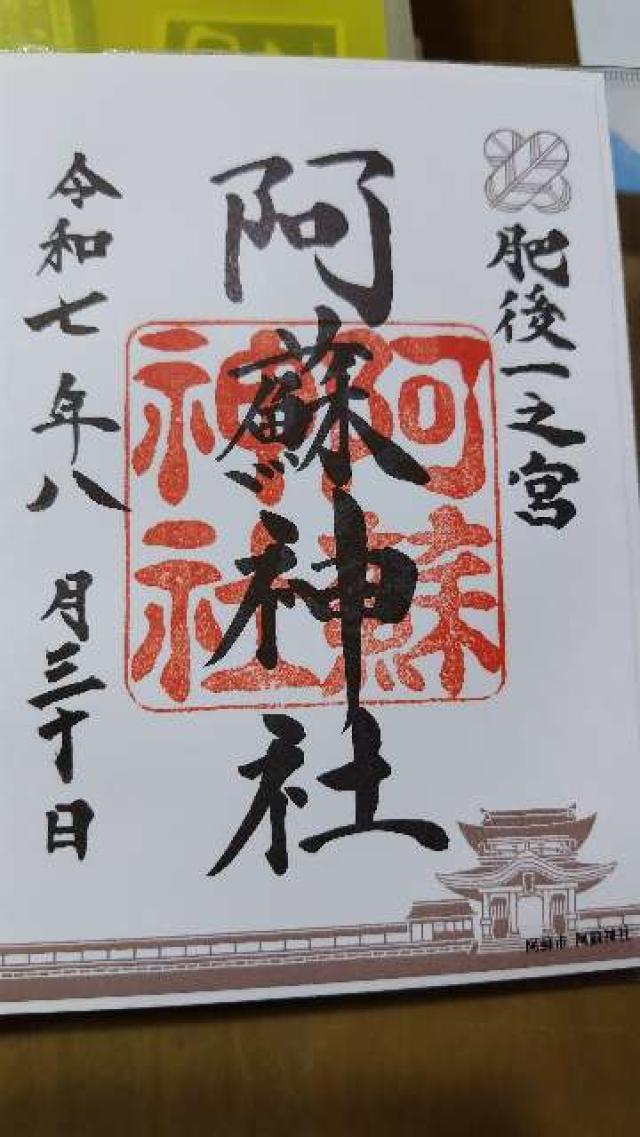 肥後一之宮
阿蘇神社
阿蘇神社
令和七年八月三十日
阿蘇市 阿蘇神社